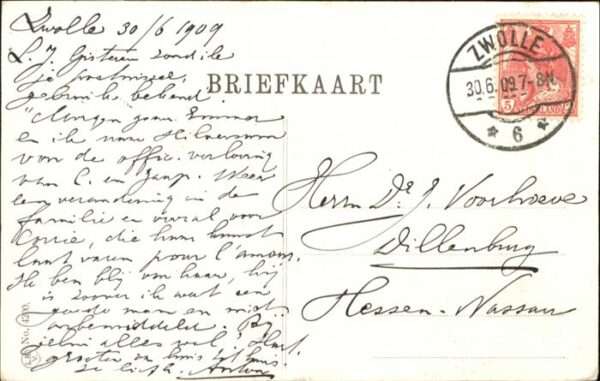 Zwolle 30/6 1909
L. J. Gisteren zond ik
je
gebruik bekend.
Morgen gaan Emma
en ik naar Hilversum
van de offic. verloving
van C. en Jaap. Weer
een verandering in de
familie en vooral voor
Corrie, die haar kunst
laat varen pour l'amour.
Ik ben blij van haar, hij
is zoover ik weet een
goede man en niet
onbemiddeld. Bij
alles wel. Hart.
groeten van huis tot huis
Anton
BRIEFKAART
ZWOLLE
30.6.09.7-8N.
* 6 *
5
Herrn Dr. J. Voorhoeve
Dillenburg
Hessen-Nassau